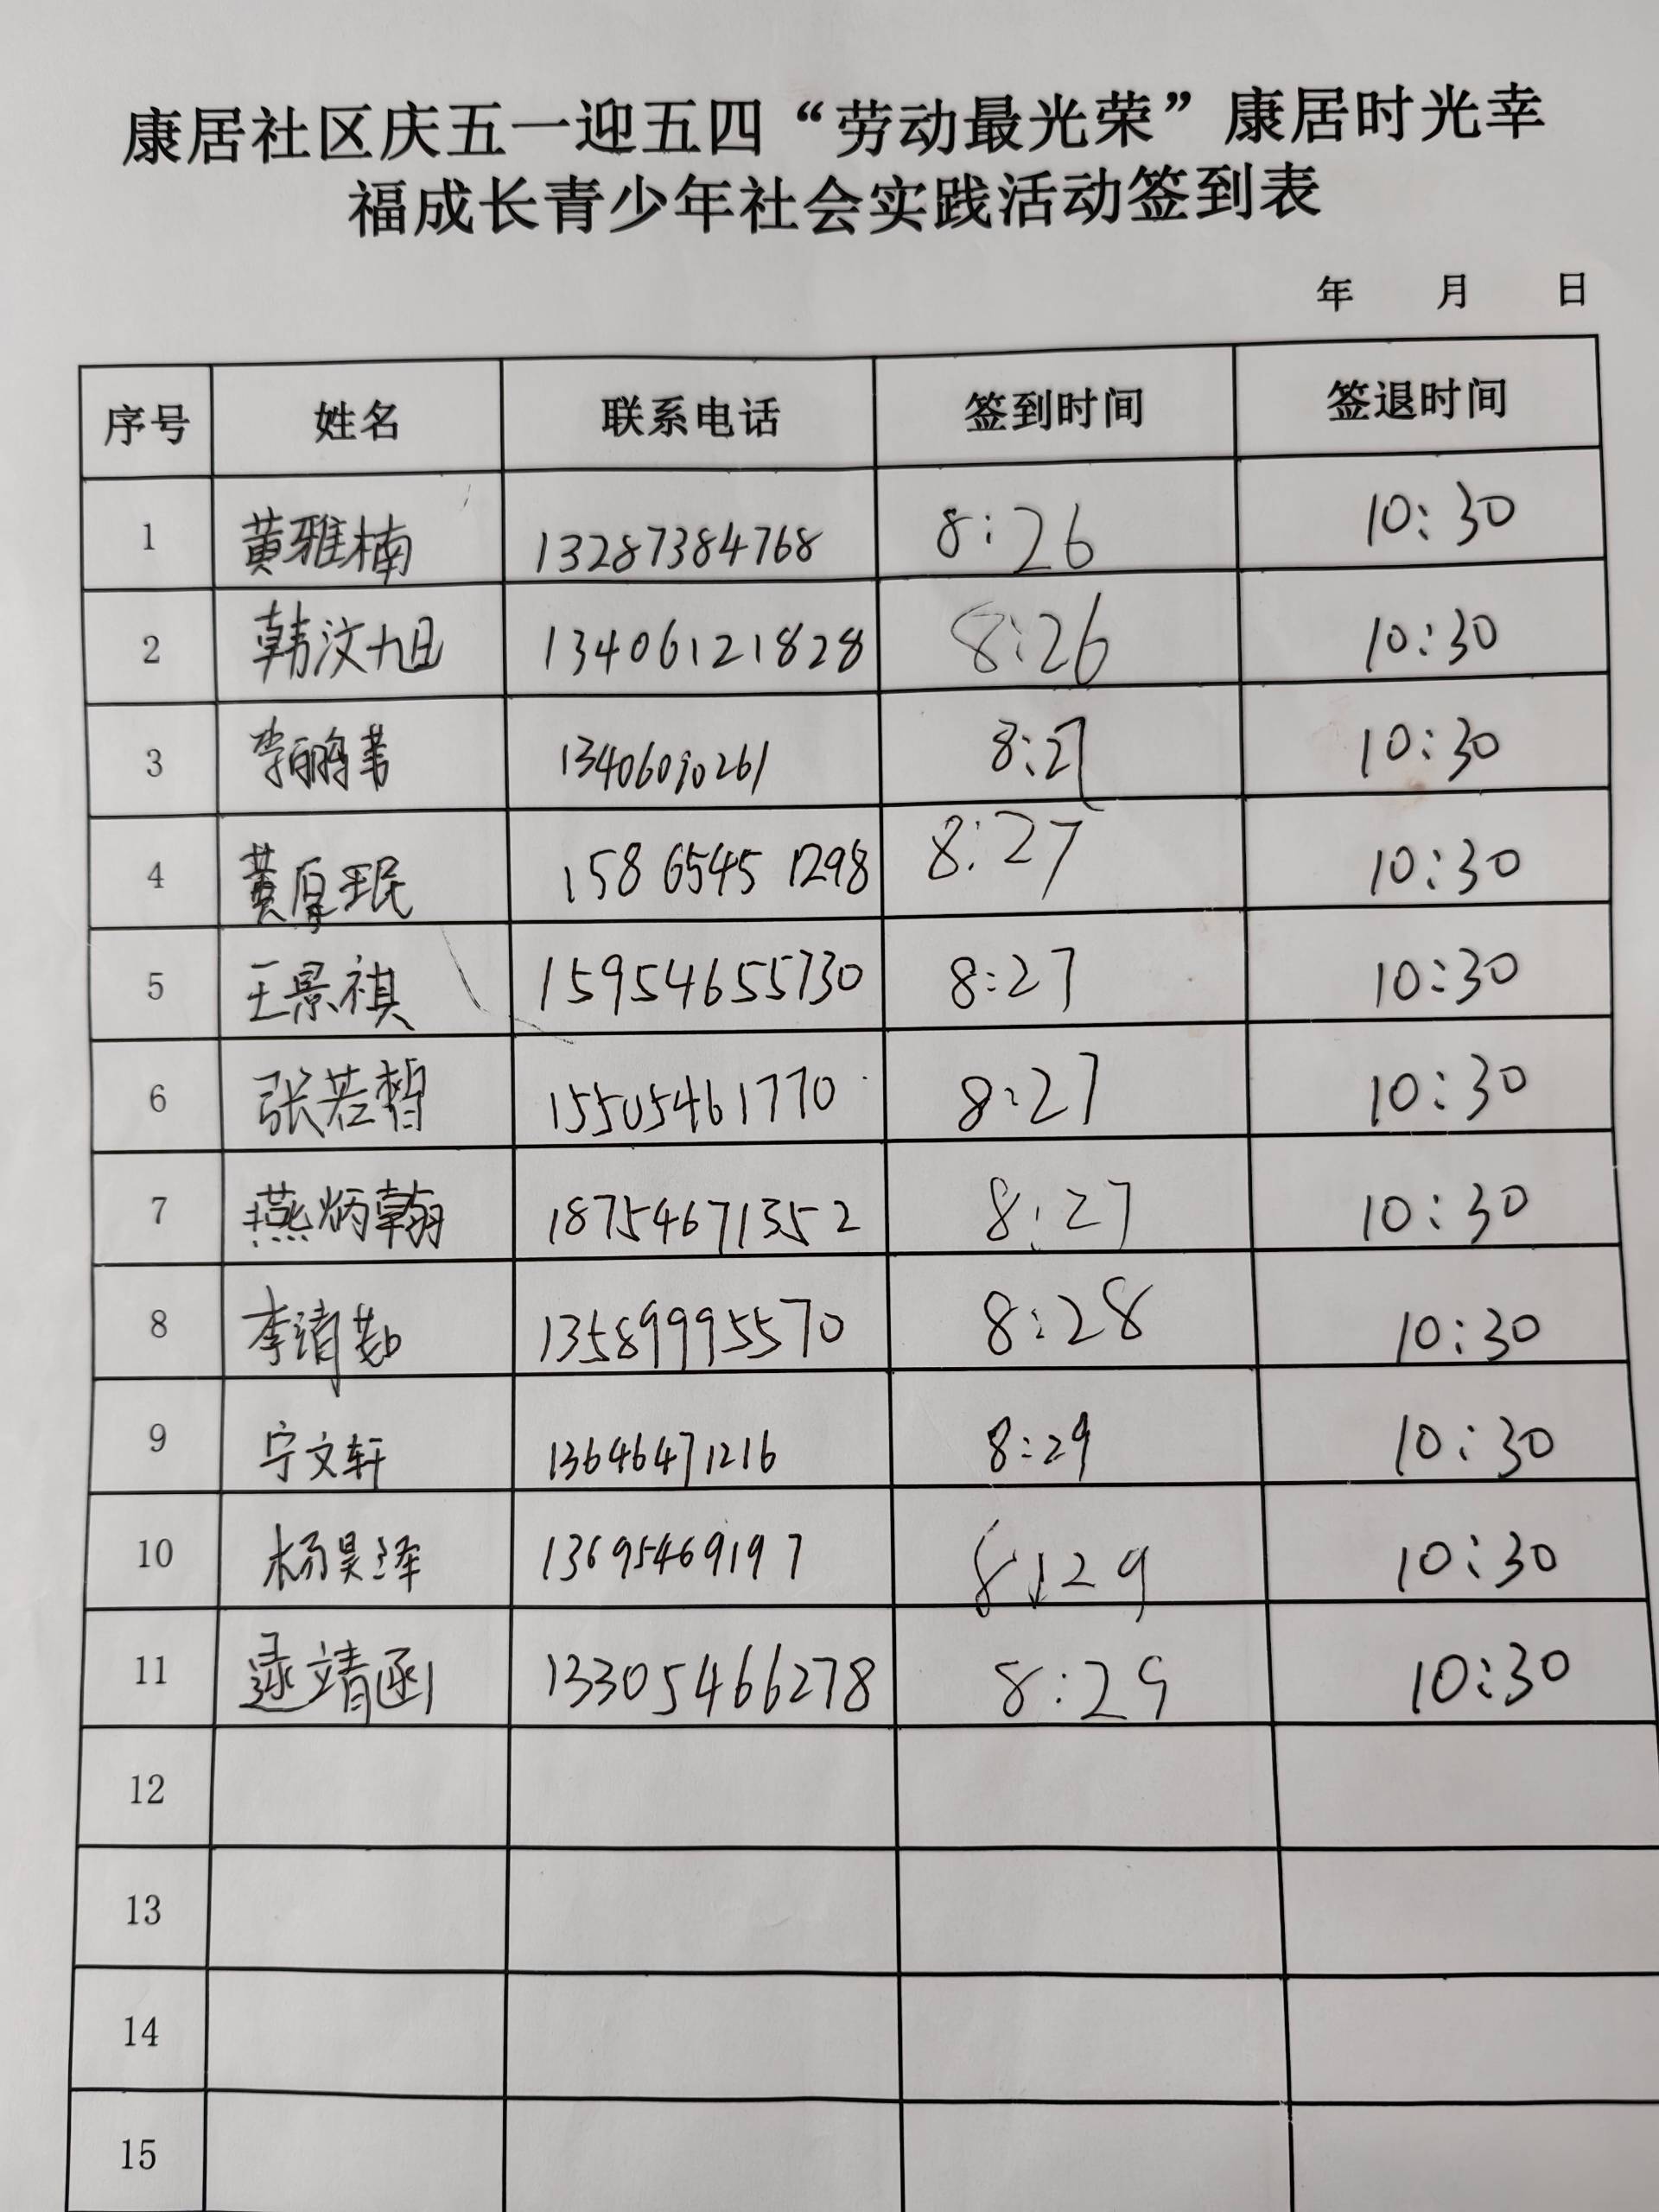 康居社区庆五一迎五四“劳动最光荣”康居时光幸
福成长青少年社会实践活动签到表
年 月 日
序号 姓名 联系电话 签到时间 签退时间
1 黄雅楠 13287384768 8:26 10:30
2 韩汶旭 13406121828 8:26 10:30
3 13406090261 8:27 10:30
4 黄厚珉 158 6545 1298 8:27 10:30
5 王景祺 15954655730 8:27 10:30
6 张若晳 15505461770 8:27 10:30
7 燕炳翰 18754671352 8:27 10:30
8 13589995570 8:28 10:30
9 宁文轩 13646471216 8:29 10:30
10 杨昊泽 13695469197 8:29 10:30
11 逯靖函 13305466278 8:29 10:30
12
13
14
15